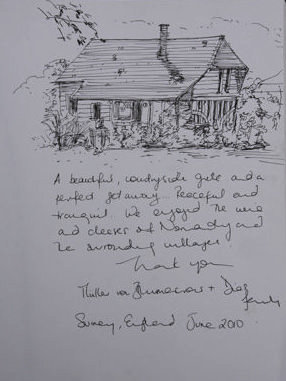 A beautiful, countryside gite and a
perfect getaway... Peaceful and
tranquil. We enjoyed the wine
and cheeses of Normandy and
the surrounding villages.
Thank you
+ family
Surrey, England June 2010